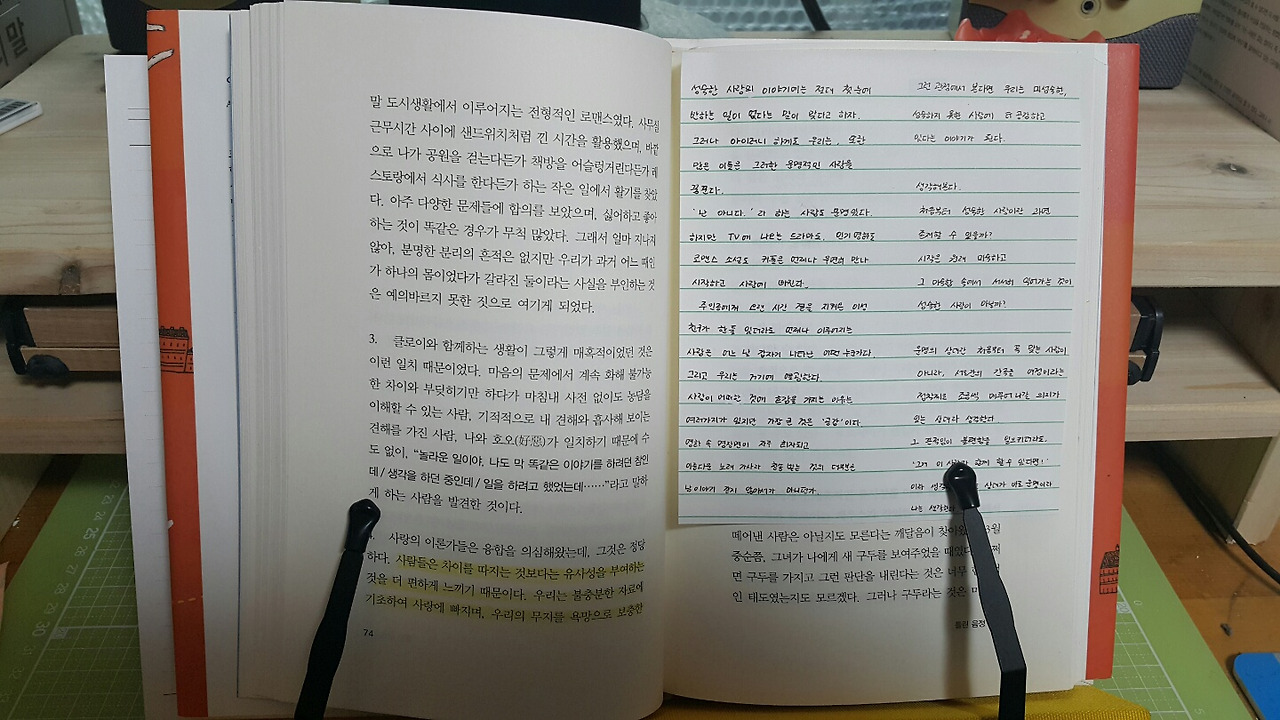 말 도시생활에서 이루어지는 전형적인 로맨스였다. 사무실
근무시간 사이에 샌드위치처럼 낀 시간을 활용했으며, 바깥
으로 나가 공원을 걷는다든가 책방을 어슬렁거린다든가 레
스토랑에서 식사를 한다든가 하는 작은 일에서 활기를 찾았
다. 아주 다양한 문제들에 합의를 보았으며, 싫어하고 좋아
하는 것이 똑같은 경우가 무척 많았다. 그래서 얼마 지나지
않아, 분명한 분리의 흔적은 없지만 우리가 과거 어느 때인
가 하나의 몸이었다가 갈라진 둘이라는 사실을 부인하는 것
은 예의바르지 못한 짓으로 여기게 되었다.
3. 클로이와 함께하는 생활이 그렇게 매혹적이었던 것은
이런 일치 때문이었다. 마음의 문제에서 계속 화해 불가능
한 차이와 부딪히기만 하다가 마침내 사전 없이도 농담을
이해할 수 있는 사람, 기적적으로 내 견해와 흡사해 보이는
견해를 가진 사람, 나와 호오(好惡)가 일치하기 때문에 수
도 없이, "놀라운 일이야, 나도 막 똑같은 이야기를 하려던 참인
데/생각을 하던 중인데/일을 하려고 했었는데……"라고 말하
게 하는 사람을 발견한 것이다.
사랑의 이론가들은 융합을 의심해왔는데, 그것은 정당
하다. 사람들은 차이를 따지는 것보다는 유사성을 부여하는
것을 더 편하게 느끼기 때문이다. 우리는 불충분한 자료에
기초하여 사랑에 빠지며, 우리의 무지를 욕망으로 보충한
74
성숙한 사랑의 이야기에는 절대 첫눈에
반하는 일이 없다는 말이 있다고 하자.
그러나 아이러니 하게도 우리는, 또한
많은 이들은 그러한 운명적인 사랑을
꿈꾼다.
'난 아니다.' 라 하는 사람도 분명있다.
하지만 TV에 나오는 드라마도, 인기
로맨스 소설도 커플은 언제나 우연히 만나
시작하고 사랑에 빠진다.
주인공에게 오랜 시간 곁을 지켜온 이성
친구가 한둘 있더라도 언제나 이루어지는
사랑은 어느 날 갑자기 나타난 어떤 누군가다.
그리고 우리는 거기에 열광한다.
사람이 어떠한 것에 호감을 가지는 이유는
여러가지가 있지만 가장 큰 것은 '공감'이다.
영화 속 명장면이 자주 회자되고
아름다운 노래 가사가 중독 받는 것의 대부분은
남 이야기 같지 않아서가 아니던가.
그런 관점에서 본다면 우리는 미성숙한,
성숙하지 못한 사랑에 더 공감하고
있다는 이야기가 된다.
생각해본다.
처음부터 성숙한 사랑이란 과연
존재할 수 있을까?
시작은 원래 미숙하고
그 미숙함 속에서 서서히 익어가는 것이
성숙한 사랑이 아닐까?
운명의 상대란 처음부터 꼭 맞는 사람이
아니라, 서로간의 간극을
조금씩 메꾸어나갈 의지가
있는 상대라 생각한다.
그 끈적임이 불편함을 일으키더라도,
이 함께 할 수 있다면!'
상대가 바로 운명이라
나는
떼어낸 사람은 아닐지도 모른다는 깨달음이 찾아왔
중순쯤, 그녀가 나에게 새 구두를 보여주었을 때였다
면 구두를 가지고 그런 판단을 내린다는 것은 너무
인 태도였는지도 모르겠다. 그러나 구두라는 것은
틀린 음정